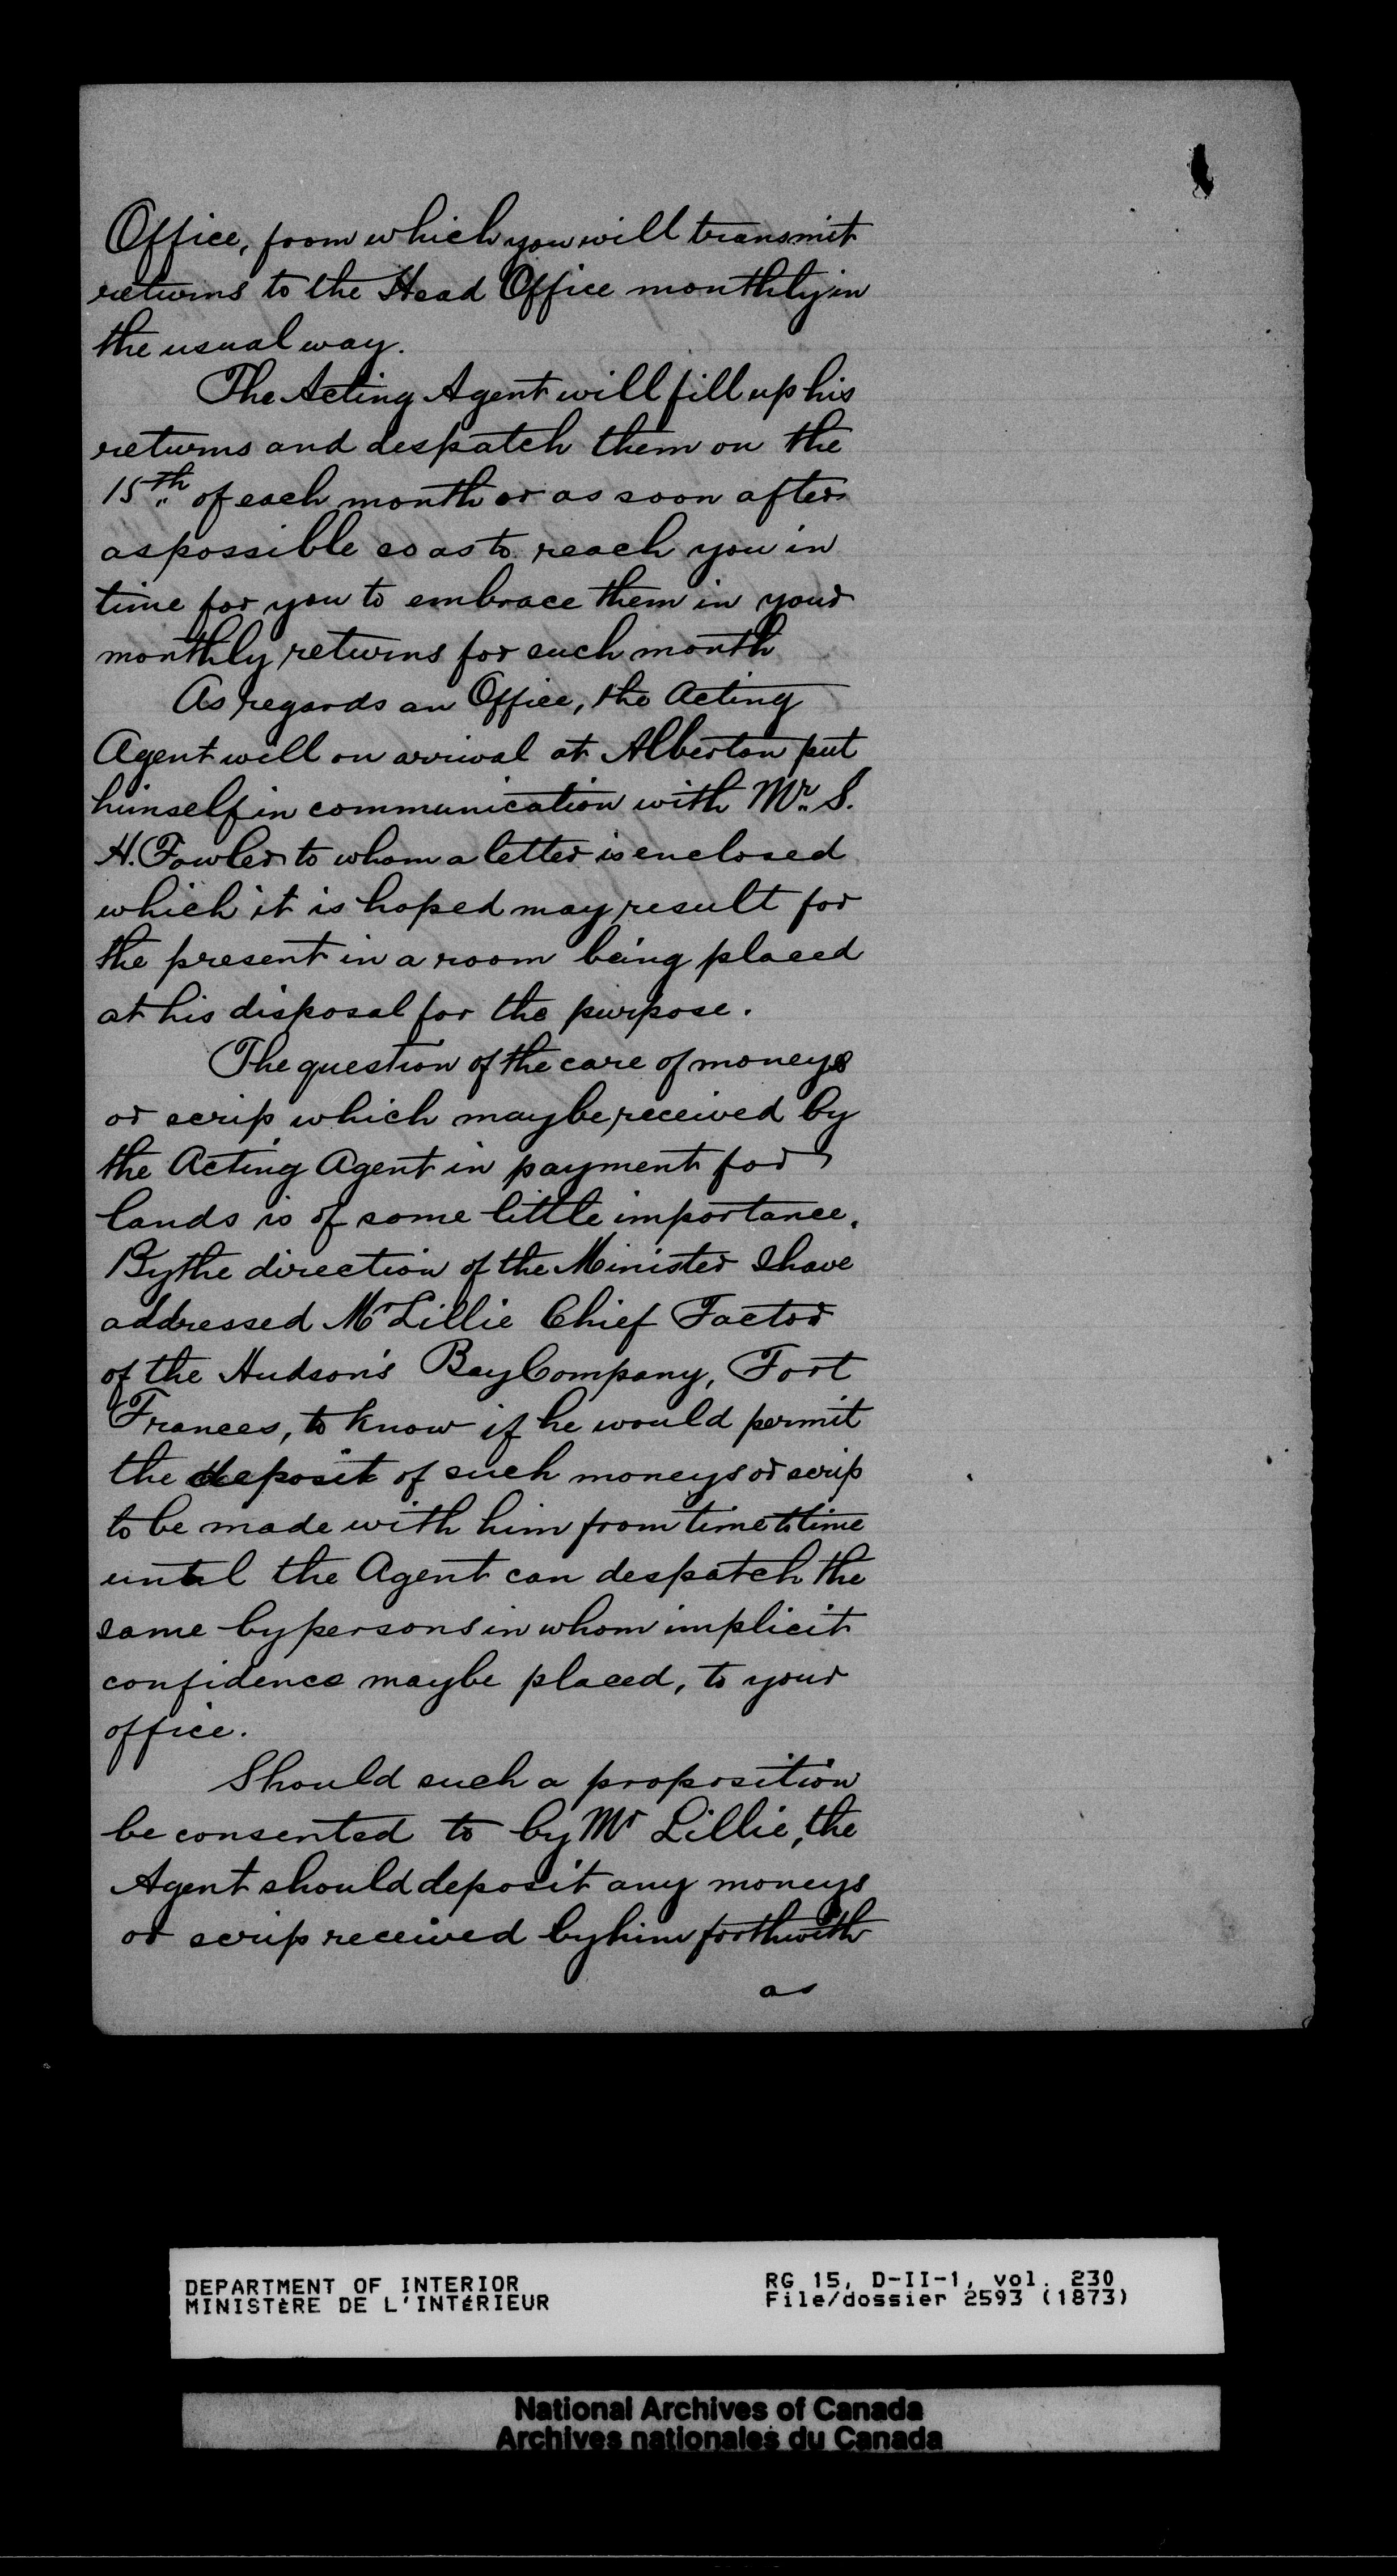 Office, from which you will transmit
returns to the Head Office monthly in
the usual way.
The Acting Agent will fill up his
returns and despatch them on the
15th of each month or as soon after
as possible so as to reach you in
time for you to embrace them in your
monthly returns for such month
As regards an Office, the Acting
Agent will on arrival at Alberton put
himself in communication with Mr. S.
H. Fowler to whom a letter is enclosed
which it is hoped may result for
the present in a room being placed
at his disposal for the purpose.
The question of the care of moneys
or scrip which may be received by
the Acting Agent in payment for
lands is of some little importance.
By the direction of the Minister I have
addressed Mr Lillie Chief Factor
of the Hudson's Bay Company, Fort
Frances, to know if he would permit
the deposit of such moneys or scrip
to be made with him from time to time
until the Agent can despatch the
same by persons in whom implicit
confidence may be placed, to your
office.
Should such a proposition
be consented to by Mr Lillie, the
Agent should deposit any moneys
or scrip received by him forthwith
as
DEPARTMENT OF INTERIOR
MINISTÈRE DE L'INTÉRIEUR
RG 15, D-II-1, vol. 230
File/dossier 2593 (1873)
National Archives of Canada
Archives nationales du Canada